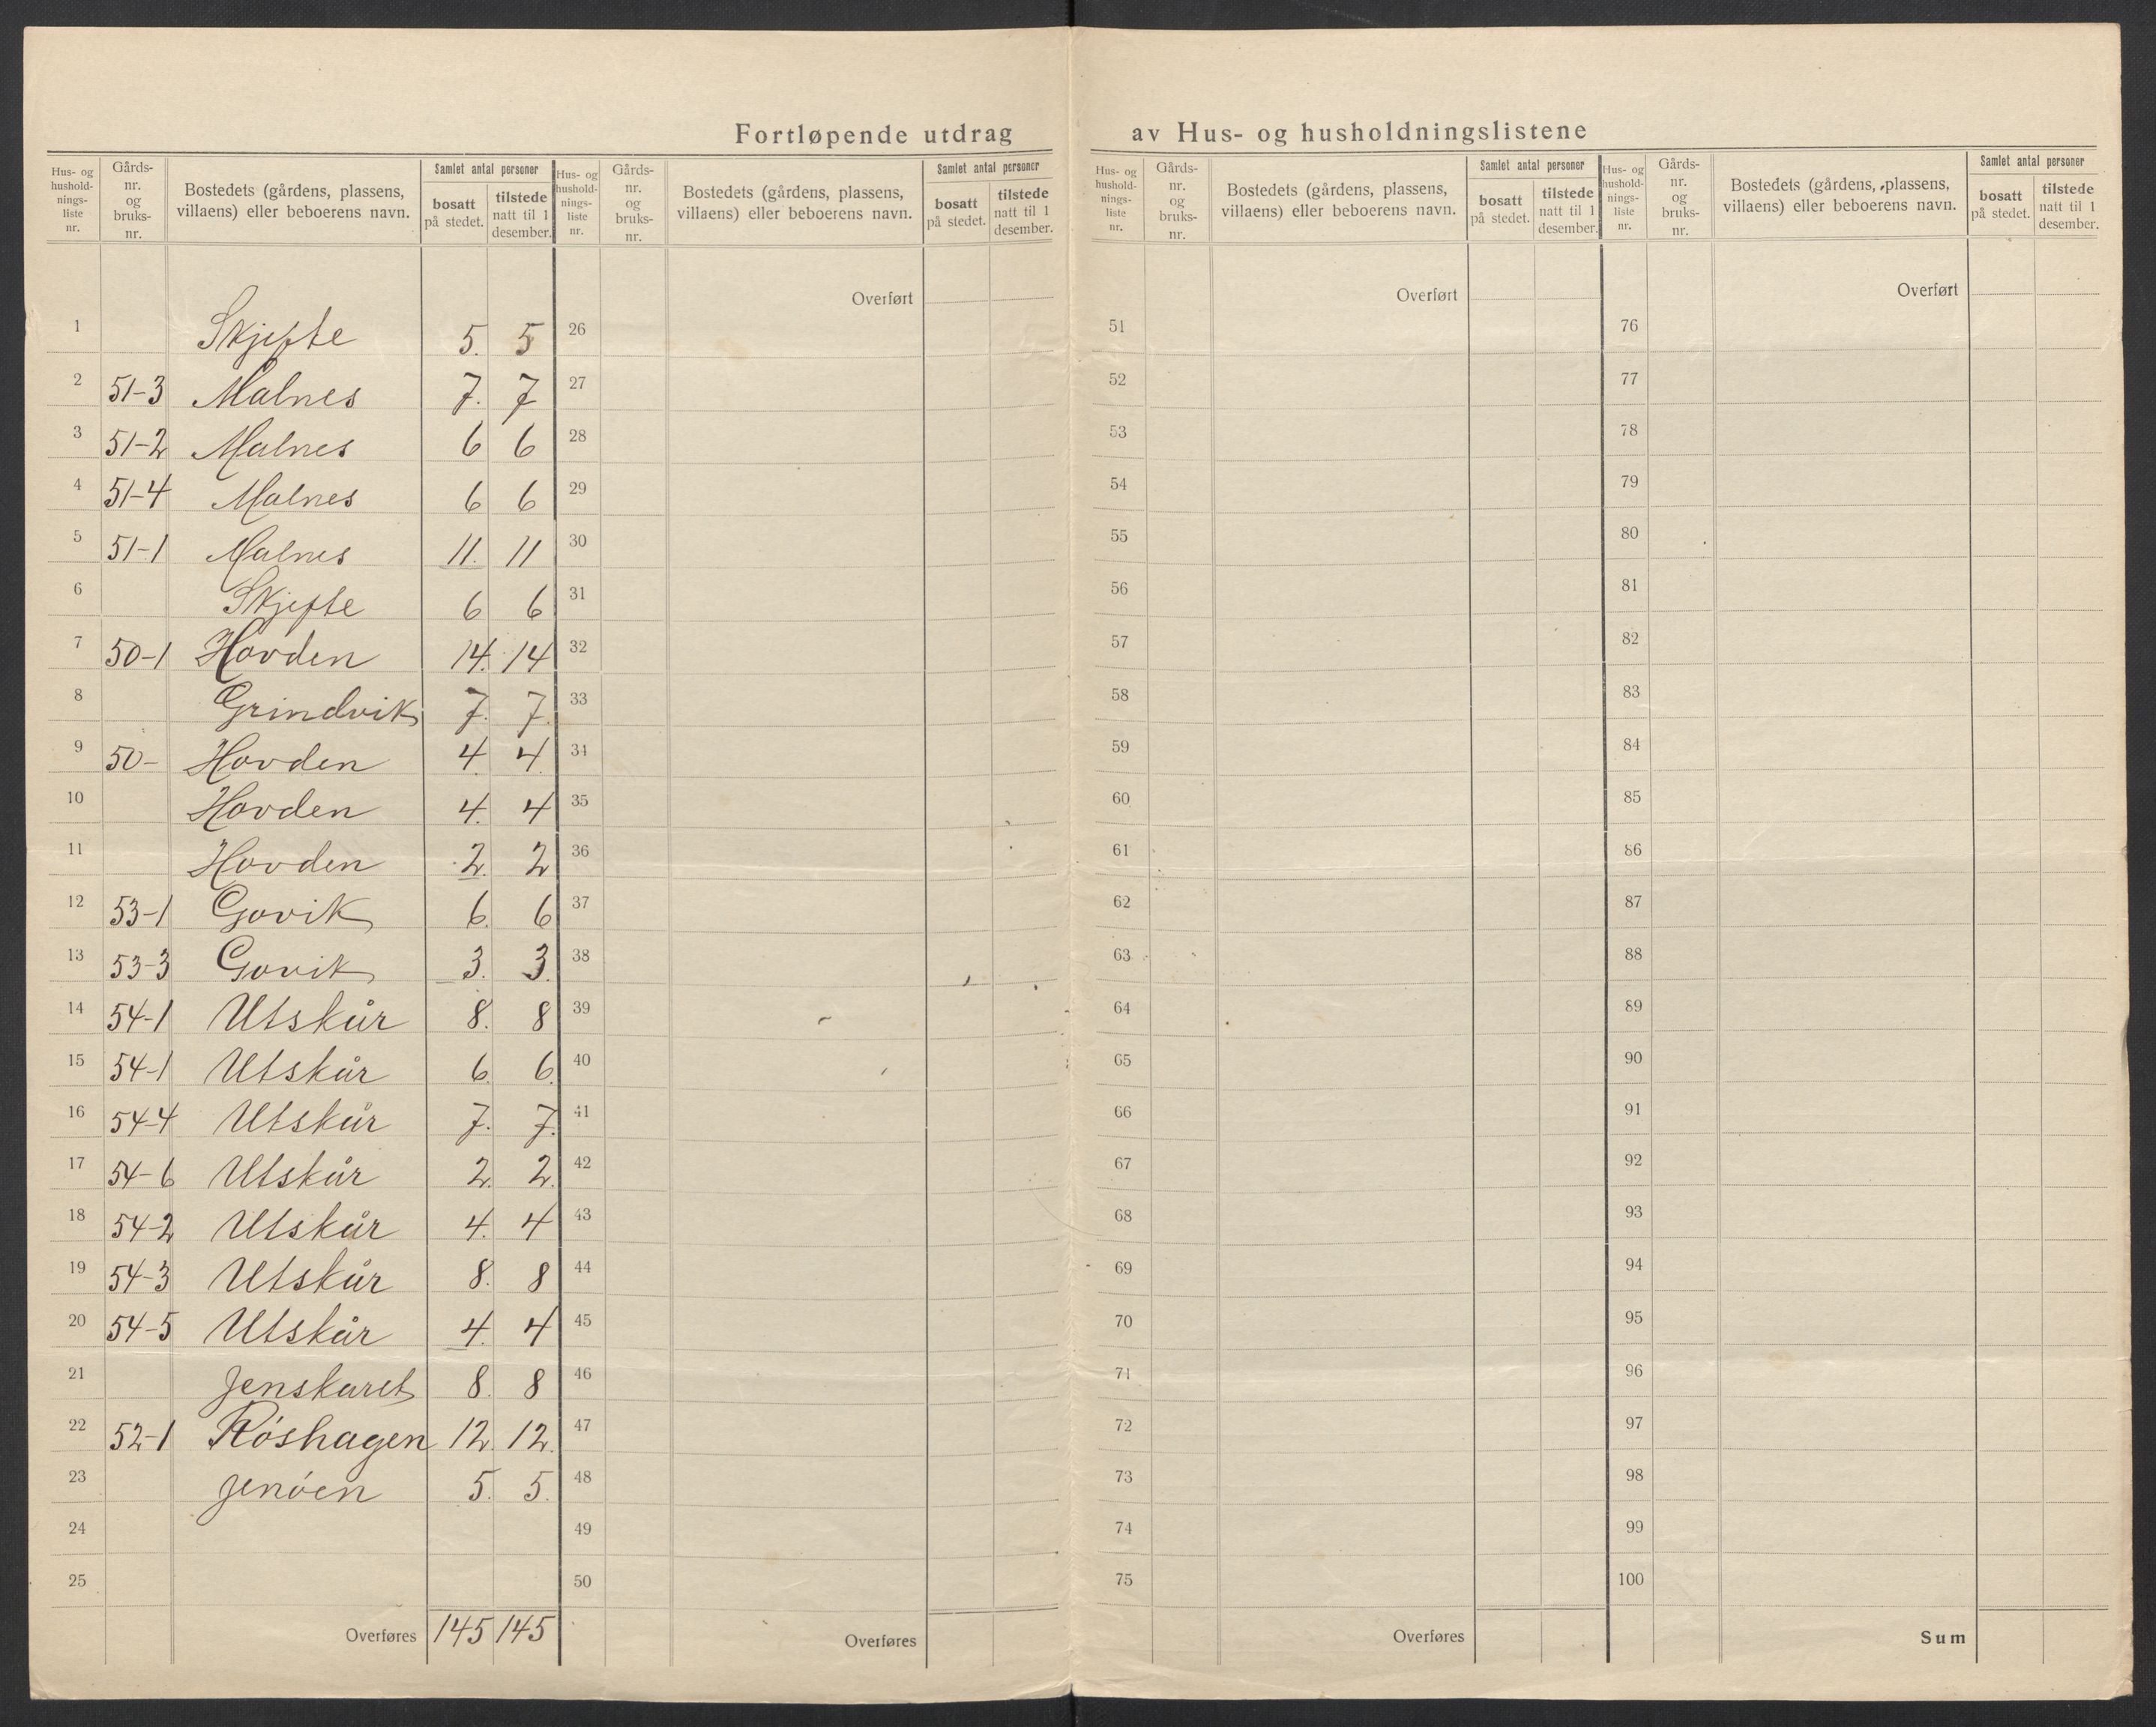 Fortløpende utdrag av Hus- og husholdningslistene
Hus- og hushold- nings- liste nr. | Gårds- nr. og bruks- nr. | Bostedets (gårdens, plassens, villaens) eller beboerens navn. | Samlet antal personer | bosatt på stedet. | tilstede natt til 1 desember.
1 Skjefte 5. 5
2 51-3 Malnes 7. 7
3 51-2 Malnes 6 6
4 51-4 Malnes 6 6
5 51-1 Malnes 11. 11
6 Skjefte 6 6
7 50-1 Hovden 14. 14
8 Grindvik 7. 7.
9 50- Hovden 4. 4.
10 Hovden 4. 4
11 Hovden 2. 2
12 53-1 Govik 6. 6
13 53-3 Govik 3. 3.
14 54-1 Utskår 8. 8
15 54-1 Utskår 6. 6.
16 54-4 Utskår 7. 7.
17 54-6 Utskår 2. 2.
18 54-2 Utskår 4. 4
19 54-3 Utskår 8. 8
20 54-5 Utskår 4. 4
21 Jenskaret 8. 8
22 52-1 Róshagen 12. 12.
23 Jenóen 5. 5.
24
25
Overføres 145 145
Hus- og hushold- nings- liste nr. | Gårds- nr. og bruks- nr. | Bostedets (gårdens, plassens, villaens) eller beboerens navn. | Samlet antal personer | bosatt på stedet. | tilstede natt til 1 desember.
Overført
26
27
28
29
30
31
32
33
34
35
36
37
38
39
40
41
42
43
44
45
46
47
48
49
50
Overføres
Hus- og hushold- nings- liste nr. | Gårds- nr. og bruks- nr. | Bostedets (gårdens, plassens, villaens) eller beboerens navn. | Samlet antal personer | bosatt på stedet. | tilstede natt til 1 desember.
Overført
51
52
53
54
55
56
57
58
59
60
61
62
63
64
65
66
67
68
69
70
71
72
73
74
75
Overføres
Hus- og hushold- nings- liste nr. | Gårds- nr. og bruks- nr. | Bostedets (gårdens, plassens, villaens) eller beboerens navn. | Samlet antal personer | bosatt på stedet. | tilstede natt til 1 desember.
Overført
76
77
78
79
80
81
82
83
84
85
86
87
88
89
90
91
92
93
94
95
96
97
98
99
100
Sum